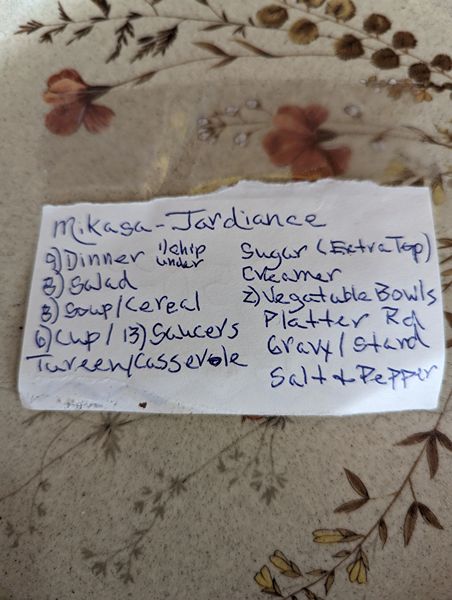 Mikasa - Jardiance
9) Dinner 1) chip under
8) Salad
8) Soup/Cereal
6) Cup / 13) Saucers
Tureen/Casserole
Sugar (Extra Top)
Creamer
2) Vegatable Bowls
Platter Rd
Gravy/Stand
Salt & Pepper